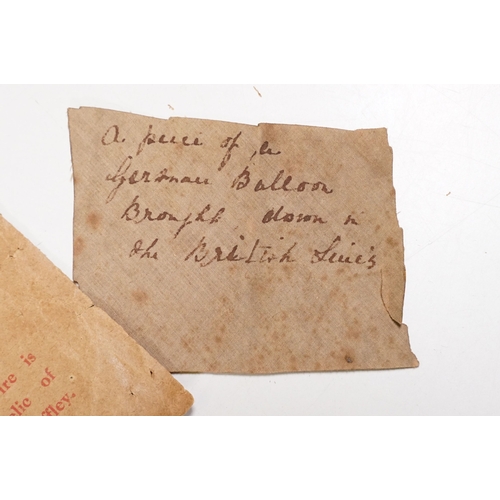 A peice of a
German Balloon
Brought down in
the British Lines
ire is
elic of
ffley.